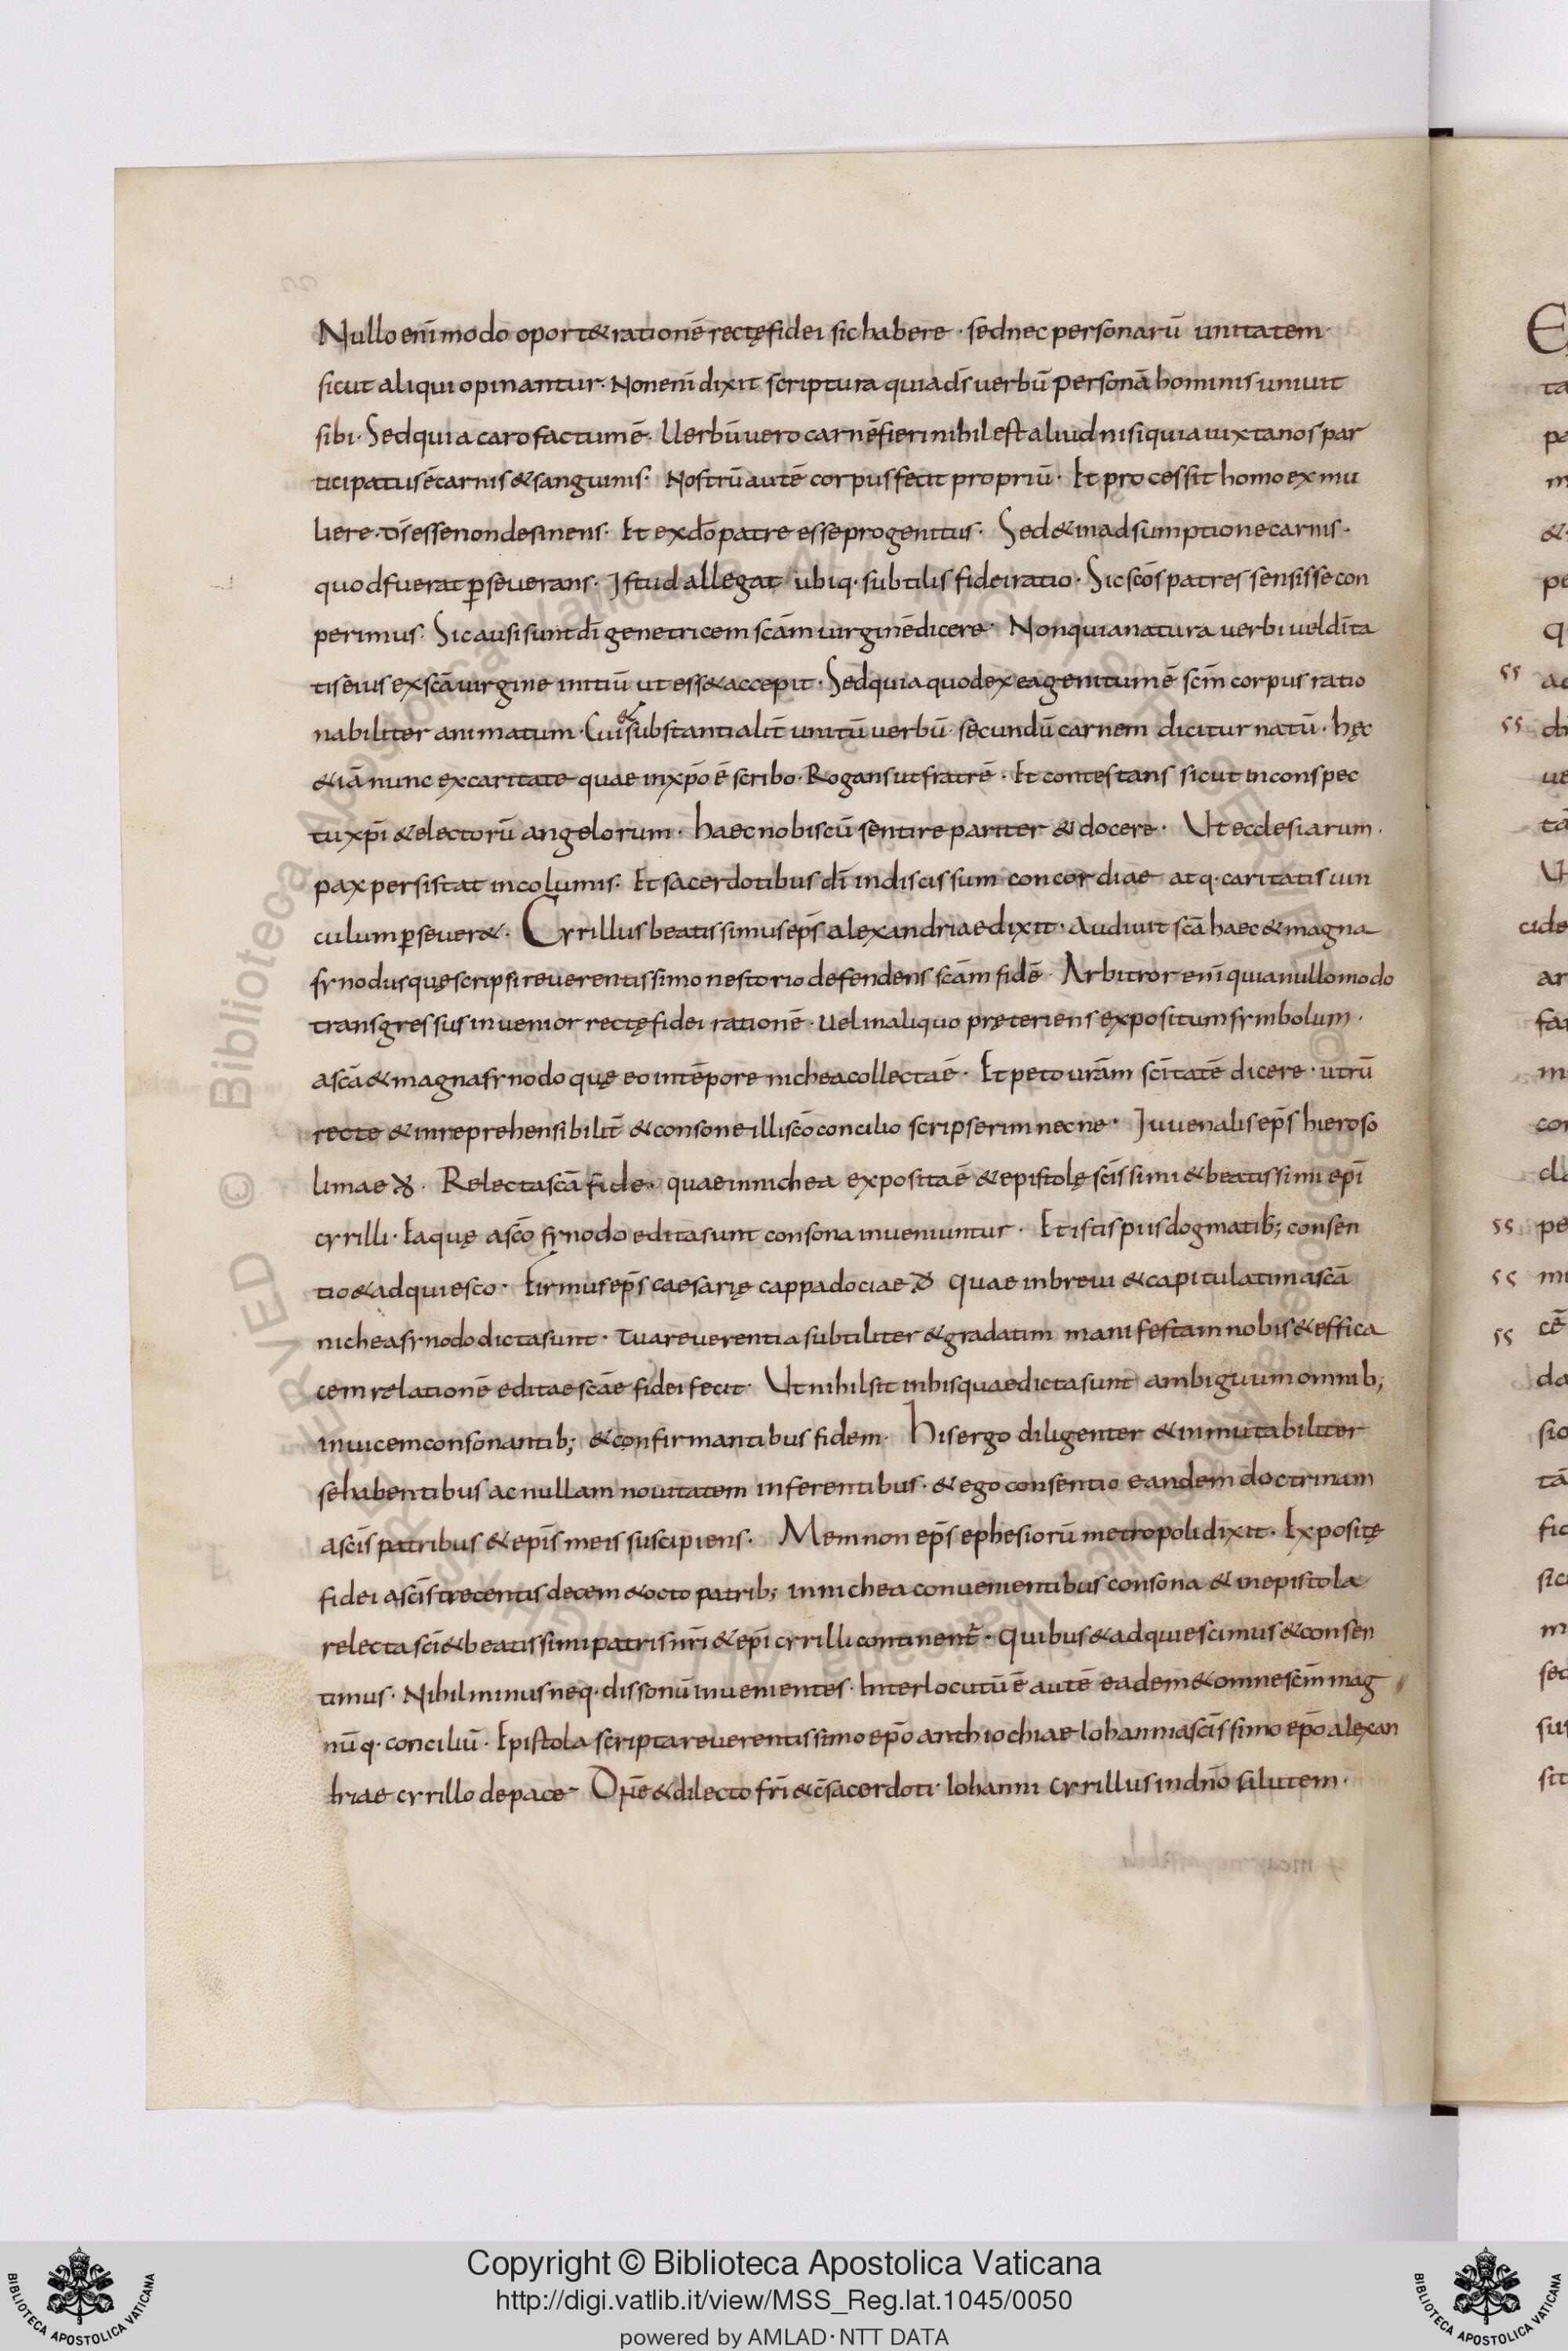 Nullo eni᷃ modo oport& rationē rectę fidei sic habere · sed nec personarū unitatem·
sicut aliqui opinantur. Non eni᷃ dixit scriptura quia d̄s uerbū personā hominis uniuit
sibi· Sed quia caro factum ē· Uerbū uero carnē fieri nihil est aliud nisi quia iuxta nos par
ticipatus ē carnis & sanguinis· Nostrū autē corpus fecit propriū· Et processit homo ex mu
liere· d̄s esse non desinens· Et ex do᷃ patre esse progenitus· Sed & in adsumptione carnis·
quod fuerat ꝑseuerans· Istud allegat ubiq· subtilis fidei ratio· Sic sc̄os patres sensisse con
perimus· Sic ausi sunt dī genetricem sc̄am uirginē dicere· Non quia natura uerbi uel dīta
tis eius ex sc̄a uirgine initiū ut ess& accepit· Sed quia quod ex ea genitum ē sc̄m corpus ratio
nabiliter animatum· Cui & substantialit̄ unitū uerbū secundū carnem dicitur natū· hęc
& iā nunc ex caritate quae in xp̄o ē scribo· Rogans ut fratrē· Et contestans sicut in conspec
tu xp̄i & electorū angelorum· haec nobiscū sentire pariter & docere· Ut ecclesiarum·
pax persistat incolumis· Et sacerdotibus dī indiscissum concordiae atq· caritatis uin
culum ꝑseuer&· Cyrillus beatissimus ep̄s alexandriae dixit· Audiuit sc̄a haec & magna
synodus quę scripsi reuerentissimo nestorio defendens sc̄am fidē· Arbitror enī quia nullo modo
transgressus inuenior rectę fidei rationē· uel in aliquo pręteriens expositum symbolum·
a sc̄a & magna synodo quę eo in tēpore nichea collecta ē· Et peto urām sc̄itatē dicere· utrū
recte & inreprehensibilit̄ & consone illi sc̄o concilio scripserim necne· Iuuenalis ep̄s hieroso
limae đ· Relecta sc̄a fide· quae in nichea exposita ē & epistolę sc̄issimi & beatissimi ep̄i
cyrilli· Ea quę a sc̄o synodo edita sunt consona inueniuntur· Et istis piis dogmatib; consen
tio & adquiesco· Firmus ep̄s caesarię cappadociae đ quae in breui & capitulatim a sc̄a
nichea synodo dicta sunt· tua reuerentia subtiliter & gradatim manifestam nobis & effica
cem relationē editae sc̄ae fidei fecit· Ut nihil sit in his quae dicta sunt ambiguum omnib;
inuicem consonantib; & confirmantibus fidem· His ergo diligenter & inmutabiliter
se habentibus ac nullam nouitatem inferentibus· & ego consentio eandem doctrinam
a sc̄is patribus & ep̄is meis suscipiens· Memnon ep̄s ephesiorū metropoli dixit· Expositę
fidei a sc̄is trecentis decem & octo patrib; in nichea conuenientibus consona & in epistola
relecta sc̄i & beatissimi patris nr̄i & ep̄i cyrilli continent̄· quibus & adquiescimus & consen
timus· Nihil minus neq· dissonū inuenientes· Interlocutū ē autē eadem & omne sc̄m mag
nūq· conciliū· Epistola scripta reuerentissimo ep̄o anthiochiae Iohanni a sc̄issimo ep̄o alexan
driae cyrillo de pace Dn̄e & dilecto frī & c̄sacerdoti· Iohanni cyrillus in dn̄o salutem·
Copyright © Biblioteca Apostolica Vaticana
http://digi.vatlib.it/view/MSS_Reg.lat.1045/0050
powered by AMLAD·NTT DATA